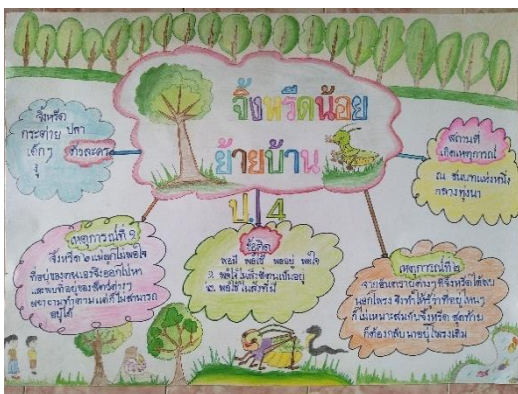 จิ้งหรีดน้อย
ย้ายบ้าน
ป.4
จิ้งหรีด
กระต่าย ปลา
เด็กๆ ตัวละคร
งู
สถานที่
เกิดเหตุการณ์
ณ ชนบทแห่งหนึ่ง
กลางทุ่งนา
เหตุการณ์ที่ ๑
จิ้งหรีด ๒ แม่ลูกไม่พอใจ
ที่อยู่ของตนเองจึงออกไปหา
และพบที่อยู่ของสัตว์ต่างๆ
พยายามทำตามแต่ก็ไม่สามารถ
อยู่ได้
ข้อคิด
พอมี พอใช้ พออยู่ พอใจ
๑. พอใจในสิ่งที่ตนเป็นอยู่
๒. พอใจในสิ่งที่มี
เหตุการณ์ที่ ๒
จากอันตรายต่างๆ ที่จิ้งหรีดได้พบ
นอกโพรง จึงทำให้รู้ว่าที่อยู่ไหนๆ
ก็ไม่เหมาะสมกับจิ้งหรีด สุดท้าย
ก็ต้องกลับมาอยู่โพรงเดิม